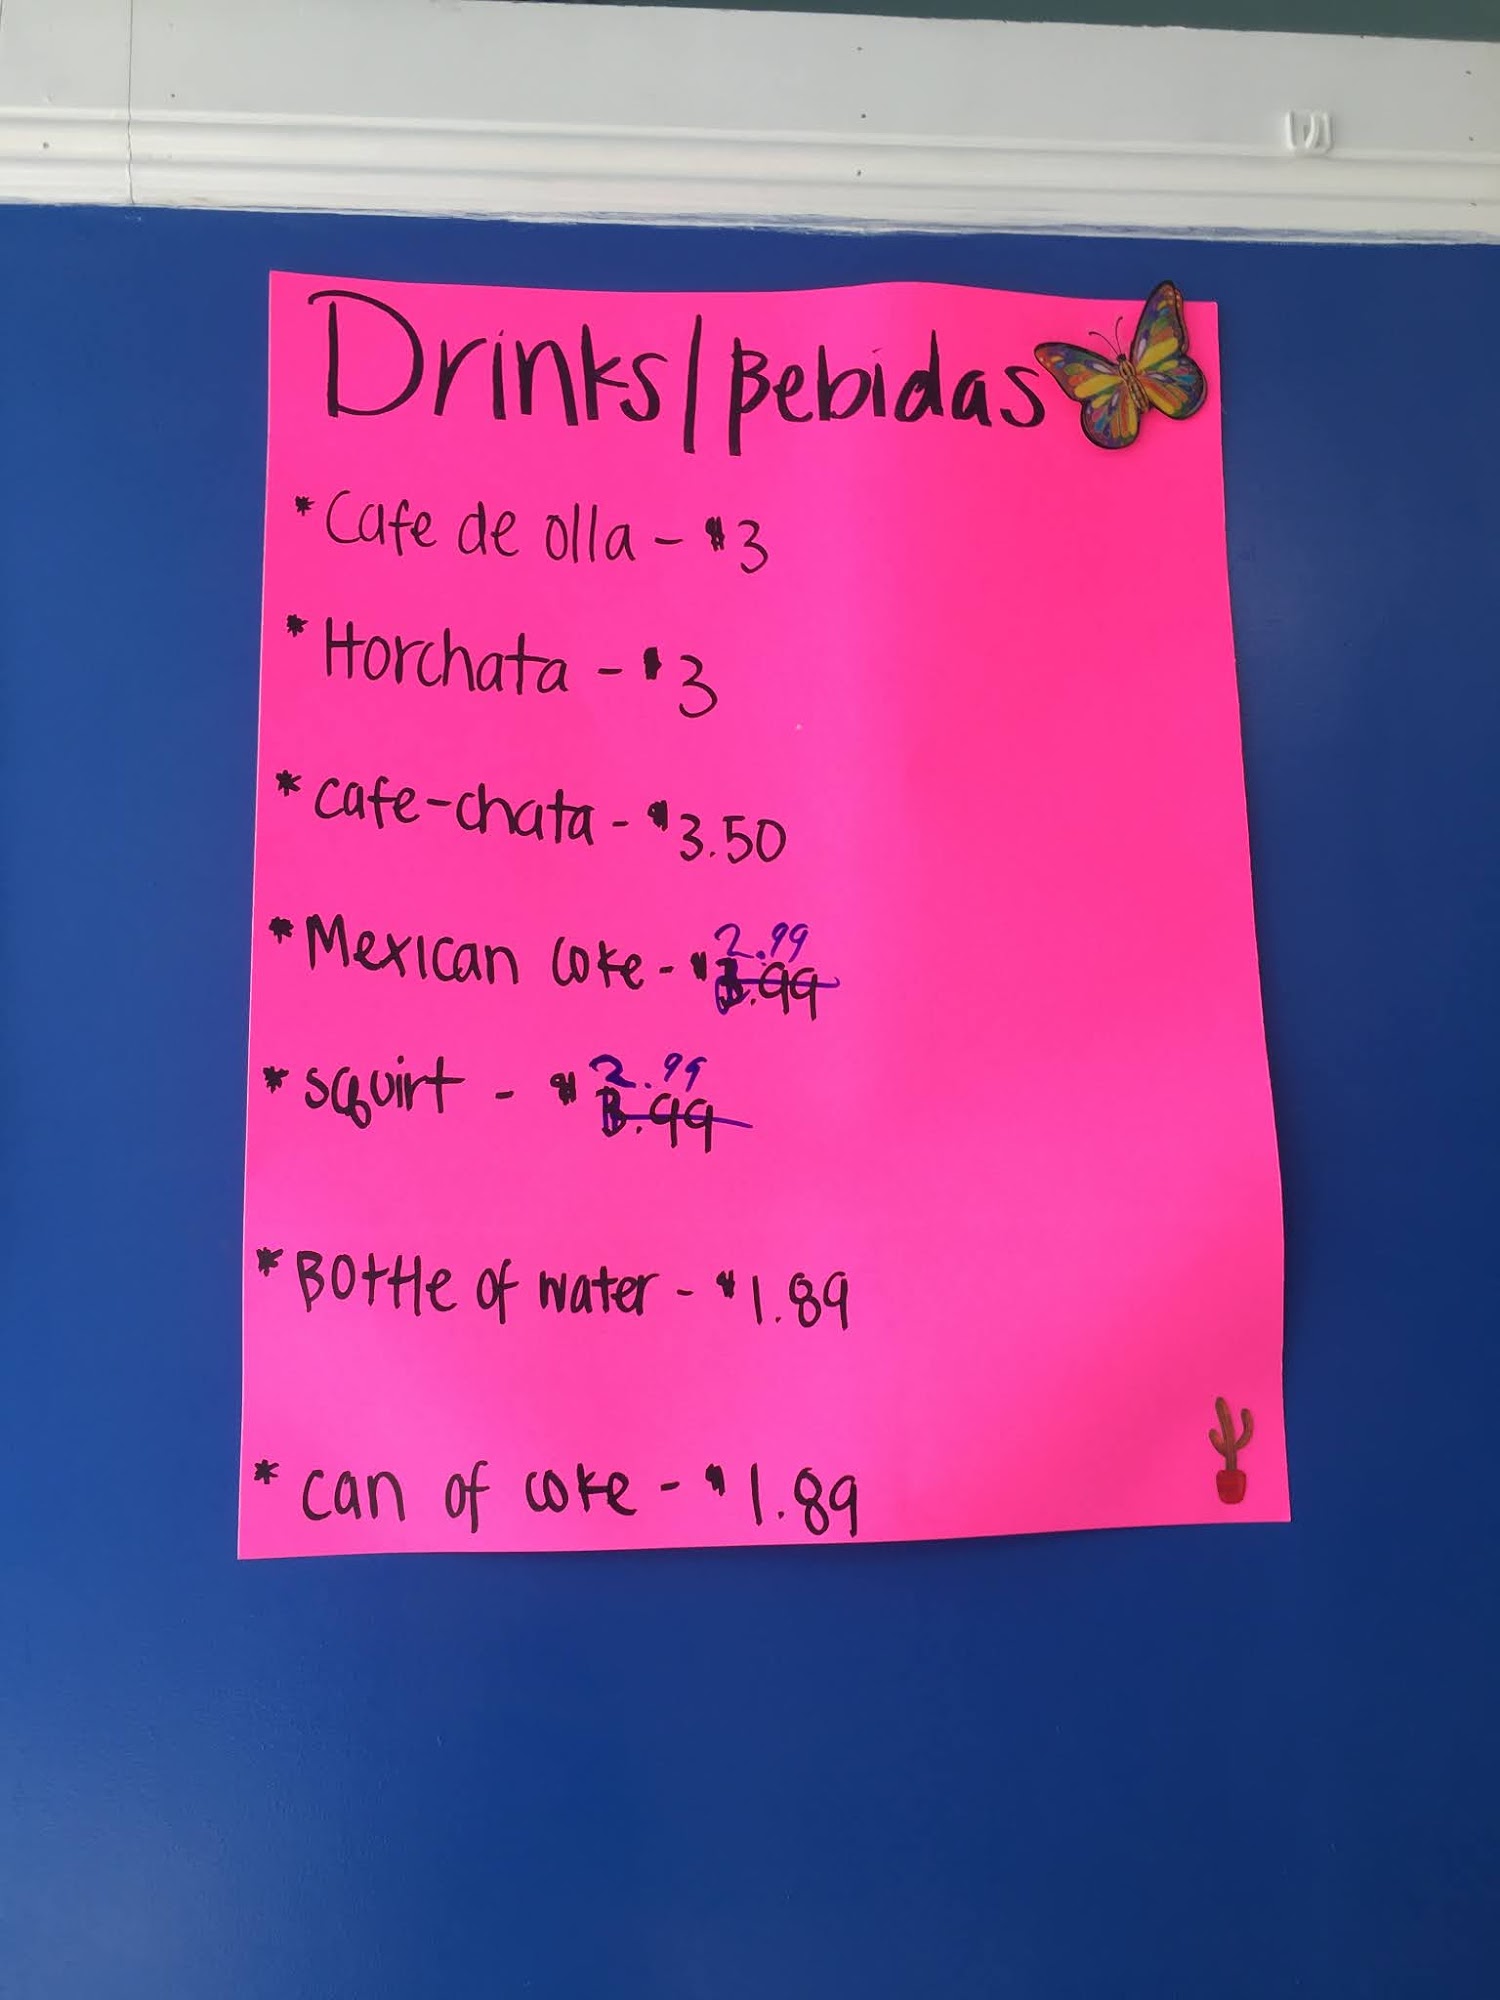 Drinks/Bebidas
* Cafe de olla - $3
* Horchata - $3
* cafe-chata - $3.50
* Mexican coke - $2.99
* squirt - $2.99
* Bottle of water - $1.89
* can of coke - $1.89